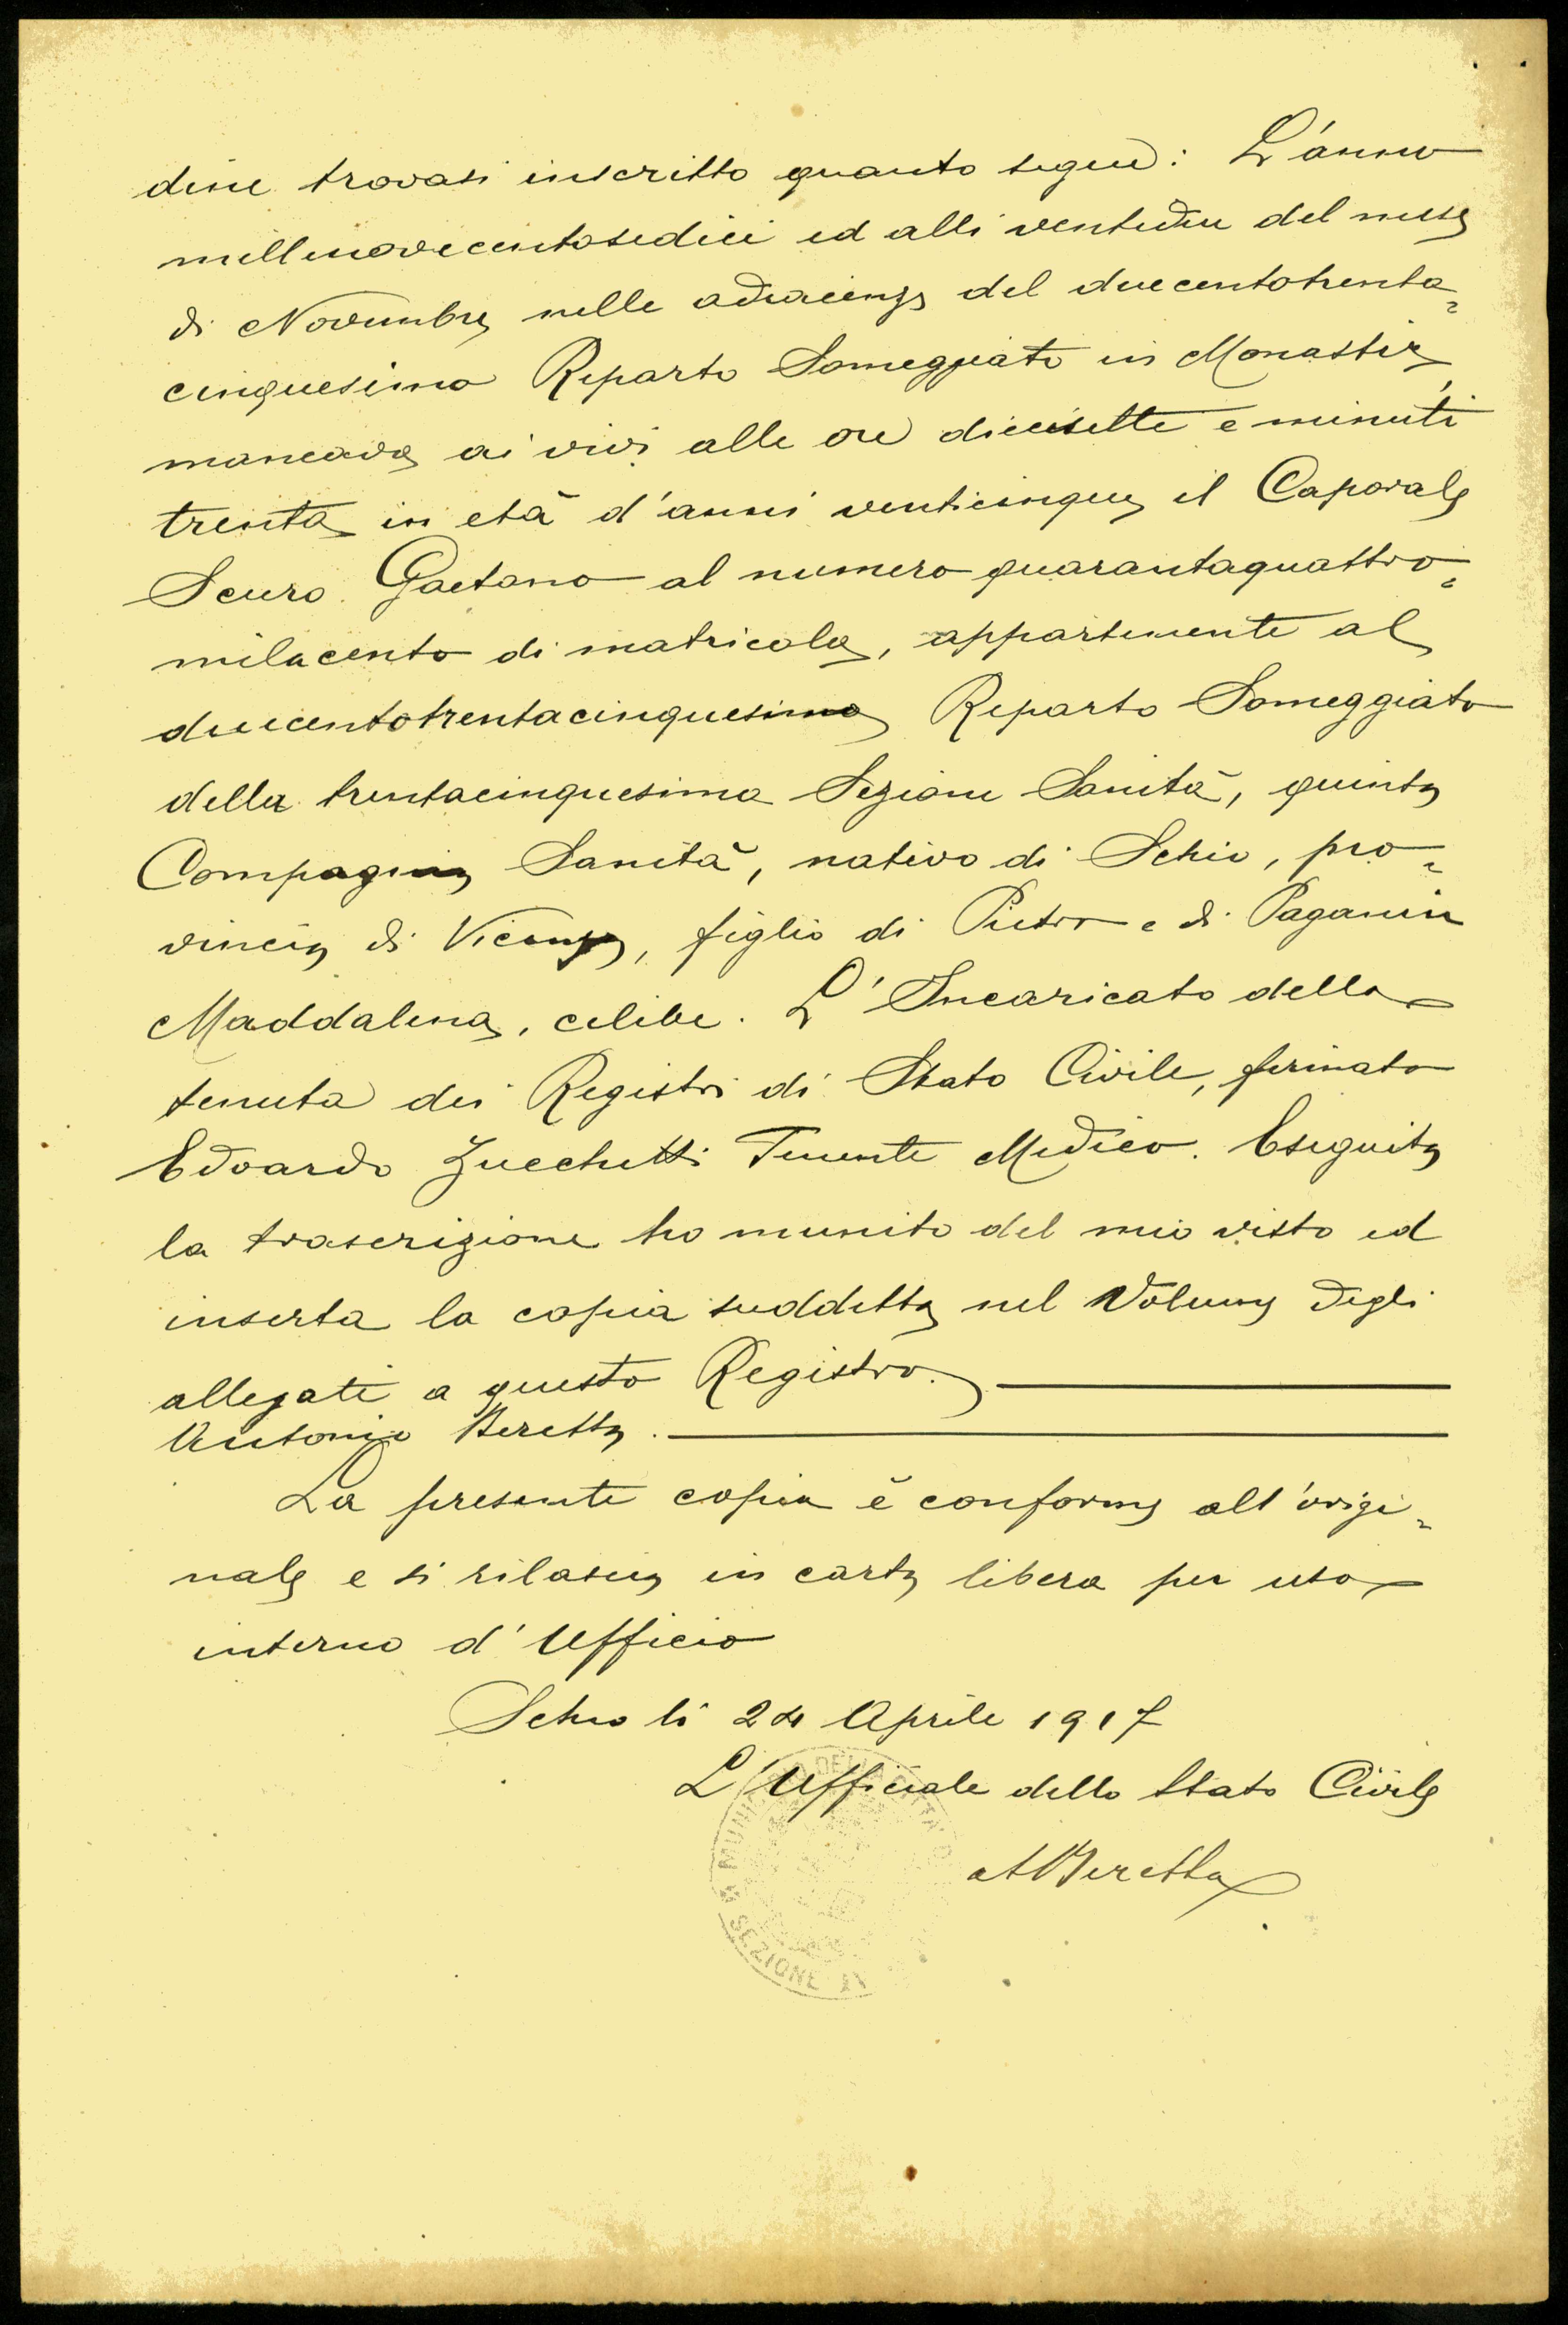 dine trovasi inscritto quanto segue: L'anno
millenovecentosedici ed alli ventidue del mese
di Novembre nelle adiacenze del duecentotrenta=
cinquesimo Reparto Someggiato in Monastir,
mancava ai vivi alle ore diciesette e minuti
trenta in età d'anni venticinque il Caporale
Scuro Gaetano al numero quarantaquattro=
milacento di matricola, appartenente al
duecentotrentacinquesimo Reparto Someggiato
della trentacinquesima Sezione Sanità, quinta
Compagnia Sanità, nativo di Schio, pro=
vincia di Vicenza, figlio di Pietro e di Paganin
Maddalena, celibe. L'Incaricato della
tenuta dei Registri di Stato Civile, firmato
Edoardo Zucchetti Tenente Medico. Eseguita
la trascrizione ho munito del mio visto ed
inserta la copia suddetta nel Volume degli
allegati a questo Registro.
Antonio Beretta.
La presente copia è conforme all'origi=
nale e si rilascia in carta libera per uso
interno d'Ufficio
Schio li 24 Aprile 1917
L'Ufficiale dello Stato Civile
ABeretta
MUNICIPIO DELLA CITTÀ D
SEZIONE